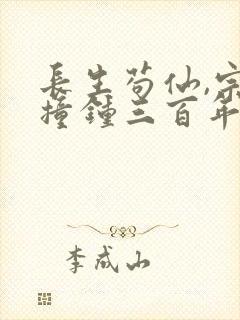 長生苟仙,宗
撞鐘三百年
李成山